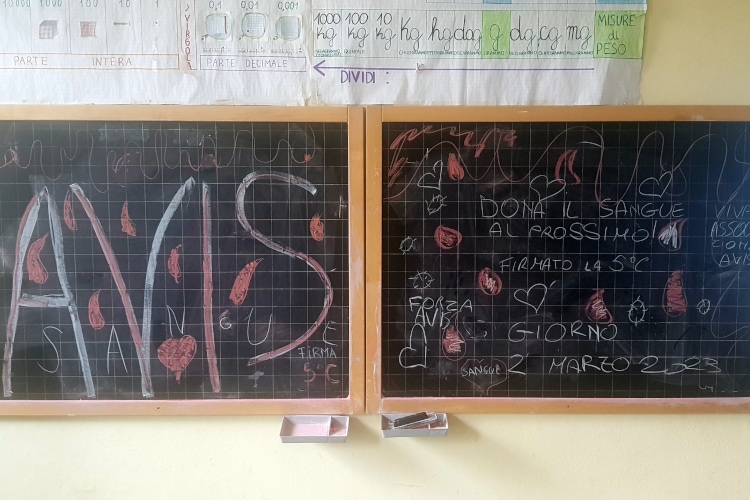 10000 1000 100 10 1
PARTE INTERA
VIRGOLA
0,1 0,01 0,001
PARTE DECIMALE
1000 kg 100 kg 10 kg Kg hg dag g dg cg mg
MISURE di PESO
DIVIDI:
AVIS
SANGUE
FIRMA
5°C
DONA IL SANGUE
AL PROSSIMO!
FIRMATO LA 5°C
FORZA
AVIS
GIORNO
2 MARZO 2023
SANGUE
VIVA
AVIS